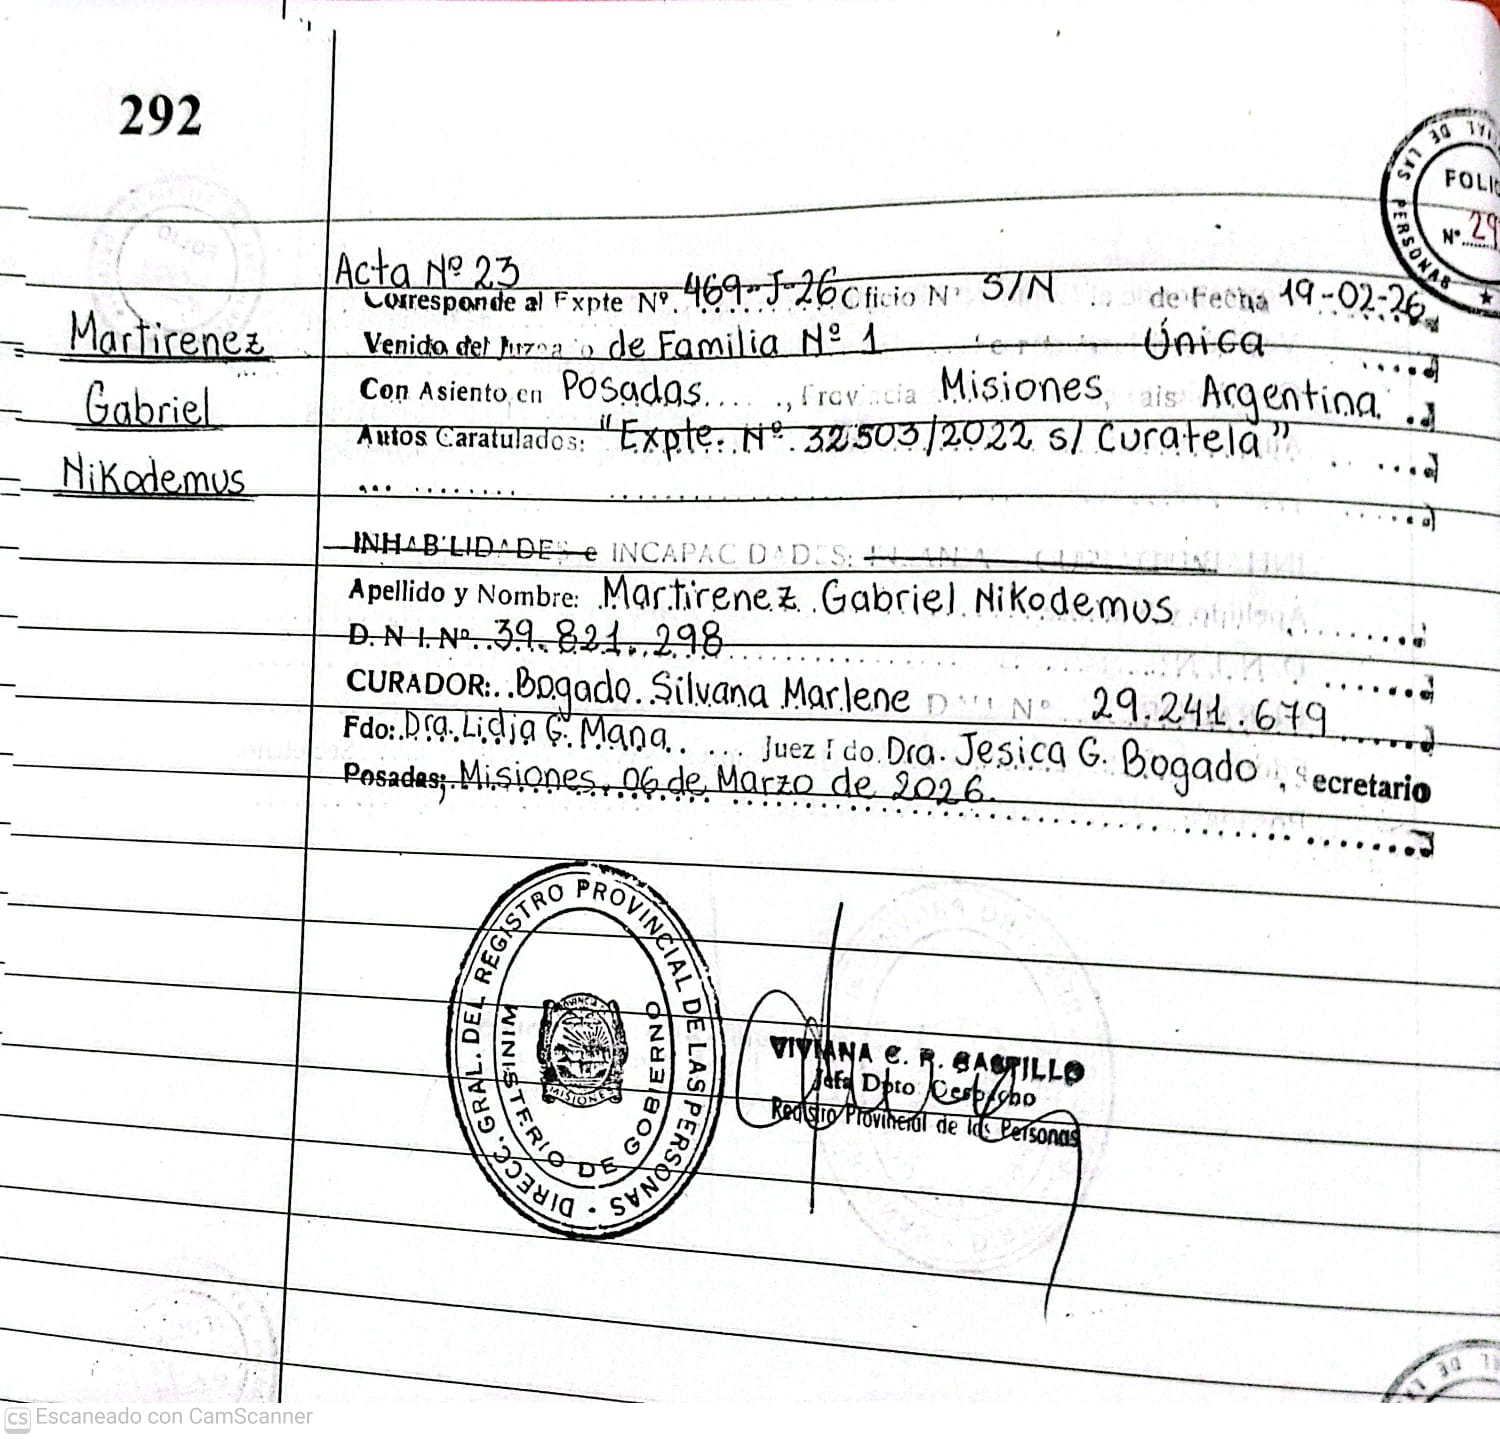 292
FOLIO
Nº 29
PERSONAS
Martirenez
Gabriel
Nikodemus
Acta Nº 23
Corresponde al Expte Nº 469-J-26 Oficio Nº S/N de Fecha 19-02-26
Venido del Juzgado de Familia Nº 1 Única
Con Asiento en Posadas, Provincia Misiones, país Argentina.
Autos Caratulados: "Expte. Nº 32503/2022 s/ Curatela"
INHABILIDADES e INCAPACIDADES:
Apellido y Nombre: Martirenez Gabriel Nikodemus
D.N.I. Nº 39.821.298
CURADOR: Bogado Silvana Marlene DNI Nº 29.241.679
Fdo: Dra. Lidia G. Mana Juez Fdo. Dra. Jesica G. Bogado, Secretario
Posadas; Misiones, 06 de Marzo de 2026.
DIRECC. GRAL. DEL REGISTRO PROVINCIAL DE LAS PERSONAS
MINISTERIO DE GOBIERNO
PROVINCIA
MISIONES
VIVIANA C. R. CASTILLO
Jefa Dpto
Registro Provincial de las Personas
CS Escaneado con CamScanner